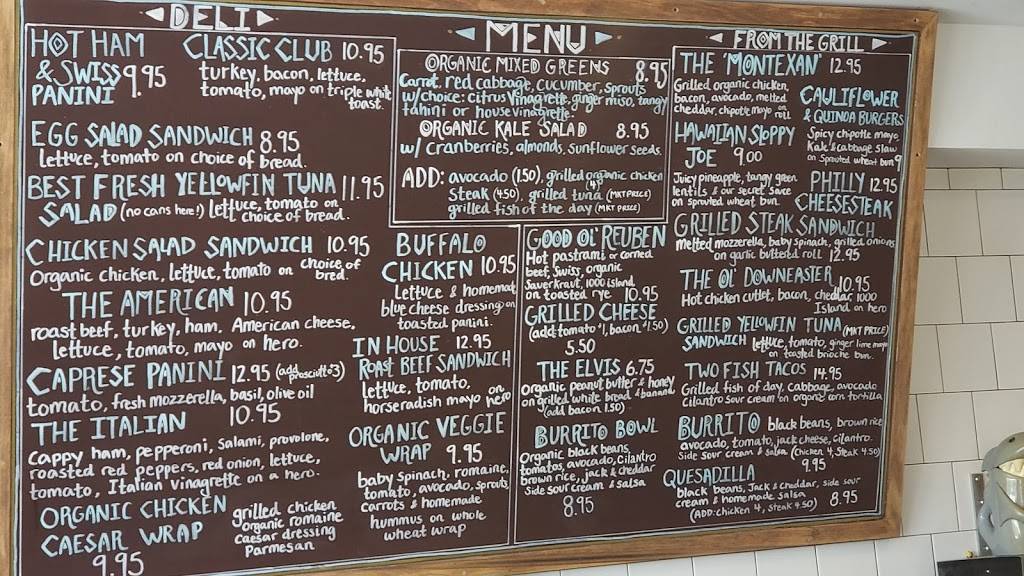 DELI
HOT HAM
& SWISS 9.95
PANINI
CLASSIC CLUB 10.95
turkey, bacon, lettuce,
tomato, mayo on triple white
toast
EGG SALAD SANDWICH 8.95
lettuce, tomato on choice of bread.
BEST FRESH YELLOWFIN TUNA 11.95
SALAD (no cans here!) lettuce, tomato on
choice of bread.
CHICKEN SALAD SANDWICH 10.95
Organic chicken, lettuce, tomato on choice of
bred.
THE AMERICAN 10.95
roast beef, turkey, ham. American cheese,
lettuce, tomato, mayo on hero.
CAPRESE PANINI 12.95 (add prosciutto $3)
tomato, fresh mozzerella, basil, olive oil
THE ITALIAN 10.95
Cappy ham, pepperoni, salami, provolone,
roasted red peppers, red onion, lettuce,
tomato, Italian vinagrette on a hero.
ORGANIC CHICKEN
CAESAR WRAP
9.95
grilled chicken
organic romaine
caesar dressing
Parmesan
BUFFALO
CHICKEN 10.95
Lettuce & homemade
blue cheese dressing on
toasted panini.
IN HOUSE 12.95
ROAST BEEF SANDWICH
lettuce, tomato,
horseradish mayo on
hero
ORGANIC VEGGIE
WRAP 9.95
baby spinach, romaine,
tomato, avocado, sprouts,
carrots & homemade
hummus on whole
wheat wrap
MENU
ORGANIC MIXED GREENS 8.95
Carrot, red cabbage, cucumber, sprouts
w/choice: citrus vinagrette, ginger miso, tangy
tahini or house vinagrette.
ORGANIC KALE SALAD 8.95
w/ cranberries, almonds, sunflower seeds.
ADD: avocado (1.50), grilled organic chicken
(4)
Steak (4.50), grilled tuna (MKT PRICE)
grilled fish of the day (MKT PRICE)
GOOD OL' REUBEN
Hot pastrami or corned
beef, Swiss, organic
Sauerkraut, 1000 island
on toasted rye 10.95
GRILLED CHEESE
(add tomato $1, bacon $1.50)
5.50
THE ELVIS 6.75
organic peanut butter & honey
on grilled white bread & banana
(add bacon 1.50)
BURRITO BOWL
Organic black beans,
tomatos, avocado, cilantro
brown rice, jack & cheddar
Side sour cream & salsa
8.95
FROM THE GRILL
THE 'MONTEXAN' 12.95
Grilled organic chicken,
bacon, avocado, melted
cheddar, chipotle mayo on
roll
CAULIFLOWER
& QUINOA BURGERS
Spicy chipotle mayo
Kale & cabbage slaw
on Sprouted wheat bun 9
HAWAIIAN SLOPPY
JOE 9.00
Juicy pineapple, tangy green
lentils & our secret sauce
on sprouted wheat bun.
PHILLY 12.95
CHEESESTEAK
GRILLED STEAK SANDWICH
melted mozzerella, baby spinach, grilled onions
on garlic buttered roll 12.95
THE OL' DOWNEASTER 10.95
Hot chicken cutlet, bacon, cheddar 1000
Island on hero
GRILLED YELLOWFIN TUNA (MKT PRICE)
SANDWICH lettuce, tomato, ginger lime mayo
on toasted brioche bun.
TWO FISH TACOS 14.95
Grilled fish of day, cabbage, avocado
Cilantro sour cream on organic corn tortilla
BURRITO black beans, brown rice
avocado, tomato, jack cheese, cilantro.
Side sour cream & salsa (Chicken 4, Steak 4.50)
9.95
QUESADILLA
black beans, Jack & cheddar, side sour
cream & homemade salsa 8.95
(ADD: chicken 4, steak 4.50)